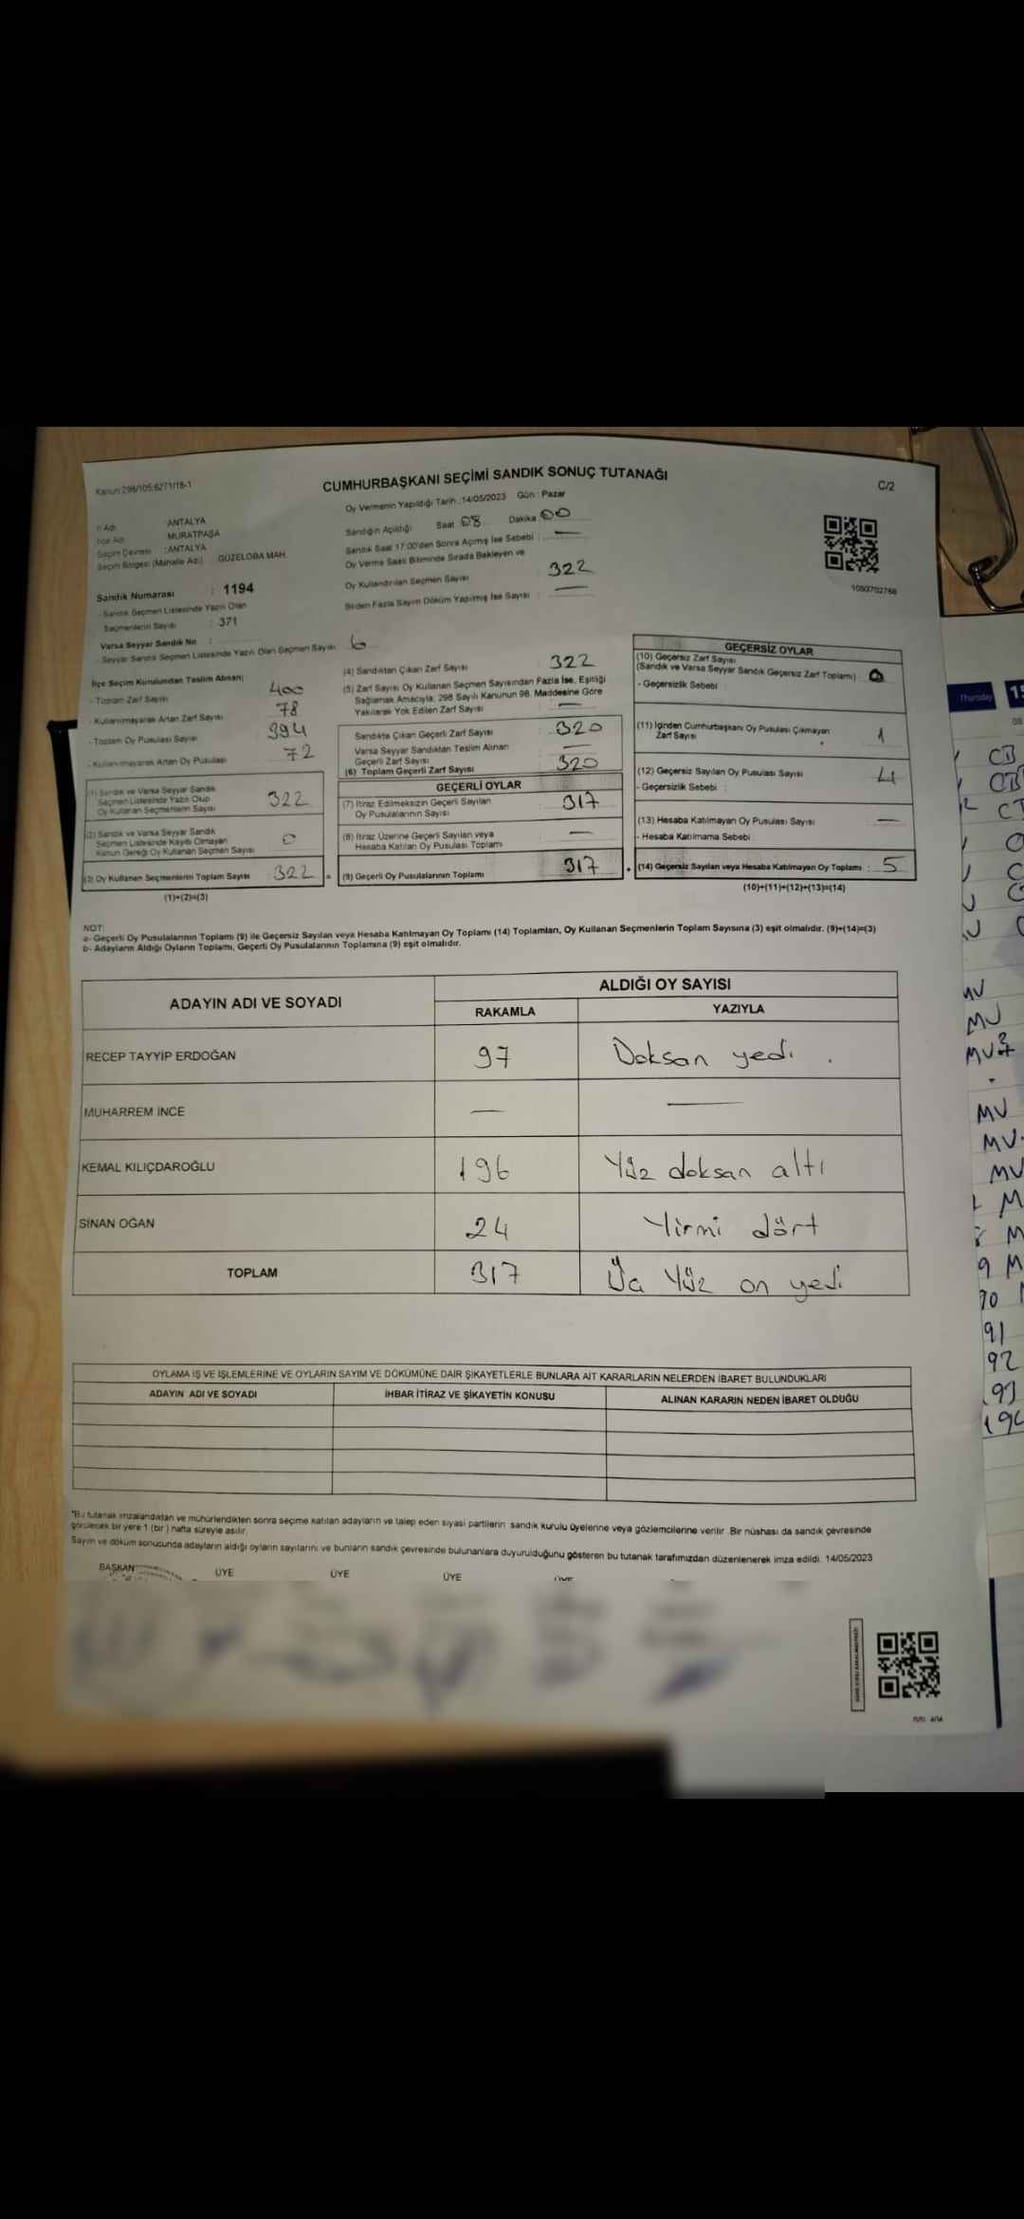 Kanun 298/105;6271/18-1
CUMHURBAŞKANI SEÇİMİ SANDIK SONUÇ TUTANAĞI
C/2
Oy Vermenin Yapıldığı Tarih : 14/05/2023 Gün : Pazar
İl Adı ANTALYA
İlçe Adı MURATPAŞA
Seçim Çevresi : ANTALYA
Seçim Bölgesi (Mahalle Adı) GÜZELOBA MAH.
Sandığın Açıldığı Saat 08 Dakika 00
Sandık Saat 17:00'den Sonra Açılmış İse Sebebi : —
Oy Verme Saati Bitiminde Sırada Bekleyen ve
Oy Kullandırılan Seçmen Sayısı 322
Birden Fazla Sayım Döküm Yapılmış İse Sayısı : —
1050702768
Sandık Numarası : 1194
- Sandık Seçmen Listesinde Yazılı Olan
Seçmenlerin Sayısı : 371
Varsa Seyyar Sandık No :
- Seyyar Sandık Seçmen Listesinde Yazılı Olan Seçmen Sayısı 6
İlçe Seçim Kurulundan Teslim Alınan;
- Toplam Zarf Sayısı 400
- Kullanılmayarak Artan Zarf Sayısı 78
- Toplam Oy Pusulası Sayısı 394
- Kullanılmayarak Artan Oy Pusulası 72
(1) Sandık ve Varsa Seyyar Sandık
Seçmen Listesinde Yazılı Olup
Oy Kullanan Seçmenlerin Sayısı 322
(2) Sandık ve Varsa Seyyar Sandık
Seçmen Listesinde Kayıtlı Olmayan
Kanun Gereği Oy Kullanan Seçmen Sayısı 0
(3) Oy Kullanan Seçmenlerin Toplam Sayısı 322
(1)+(2)=(3)
(4) Sandıktan Çıkan Zarf Sayısı 322
(5) Zarf Sayısı Oy Kullanan Seçmen Sayısından Fazla İse, Eşitliği
Sağlamak Amacıyla, 298 Sayılı Kanunun 98. Maddesine Göre
Yakılarak Yok Edilen Zarf Sayısı —
Sandıkta Çıkan Geçerli Zarf Sayısı 320
Varsa Seyyar Sandıktan Teslim Alınan
Geçerli Zarf Sayısı —
(6) Toplam Geçerli Zarf Sayısı 320
GEÇERLİ OYLAR
(7) İtiraz Edilmeksizin Geçerli Sayılan
Oy Pusulalarının Sayısı 317
(8) İtiraz Üzerine Geçerli Sayılan veya
Hesaba Katılan Oy Pusulası Toplamı —
(9) Geçerli Oy Pusulalarının Toplamı 317
GEÇERSİZ OYLAR
(10) Geçersiz Zarf Sayısı
(Sandık ve Varsa Seyyar Sandık Geçersiz Zarf Toplamı) : 0
- Geçersizlik Sebebi :
(11) İçinden Cumhurbaşkanı Oy Pusulası Çıkmayan
Zarf Sayısı 1
(12) Geçersiz Sayılan Oy Pusulası Sayısı 4
- Geçersizlik Sebebi :
(13) Hesaba Katılmayan Oy Pusulası Sayısı —
- Hesaba Katılmama Sebebi :
(14) Geçersiz Sayılan veya Hesaba Katılmayan Oy Toplamı : 5
(10)+(11)+(12)+(13)=(14)
NOT:
a- Geçerli Oy Pusulalarının Toplamı (9) ile Geçersiz Sayılan veya Hesaba Katılmayan Oy Toplamı (14) Toplamları, Oy Kullanan Seçmenlerin Toplam Sayısına (3) eşit olmalıdır. (9)+(14)=(3)
b- Adayların Aldığı Oyların Toplamı, Geçerli Oy Pusulalarının Toplamına (9) eşit olmalıdır.
ADAYIN ADI VE SOYADI
ALDIĞI OY SAYISI
RAKAMLA YAZIYLA
RECEP TAYYİP ERDOĞAN 97 Doksan yedi.
MUHARREM İNCE — —
KEMAL KILIÇDAROĞLU 196 Yüz doksan altı
SİNAN OĞAN 24 Yirmi dört
TOPLAM 317 Üç Yüz on yedi
OYLAMA İŞ VE İŞLEMLERİNE VE OYLARIN SAYIM VE DÖKÜMÜNE DAİR ŞİKAYETLERLE BUNLARA AİT KARARLARIN NELERDEN İBARET BULUNDUKLARI
ADAYIN ADI VE SOYADI İHBAR İTİRAZ VE ŞİKAYETİN KONUSU ALINAN KARARIN NEDEN İBARET OLDUĞU
*Bu tutanak imzalandıktan ve mühürlendikten sonra seçime katılan adayların ve talep eden siyasi partilerin sandık kurulu üyelerine veya gözlemcilerine verilir. Bir nüshası da sandık çevresinde
görülecek bir yere 1 (bir) hafta süreyle asılır.
Sayım ve döküm sonucunda adayların aldığı oyların sayılarını ve bunların sandık çevresinde bulunanlara duyurulduğunu gösteren bu tutanak tarafımızdan düzenlenerek imza edildi. 14/05/2023
BAŞKAN ÜYE ÜYE ÜYE
Thursday
CB
MV
MU
MU
MV
MV
91
92
93